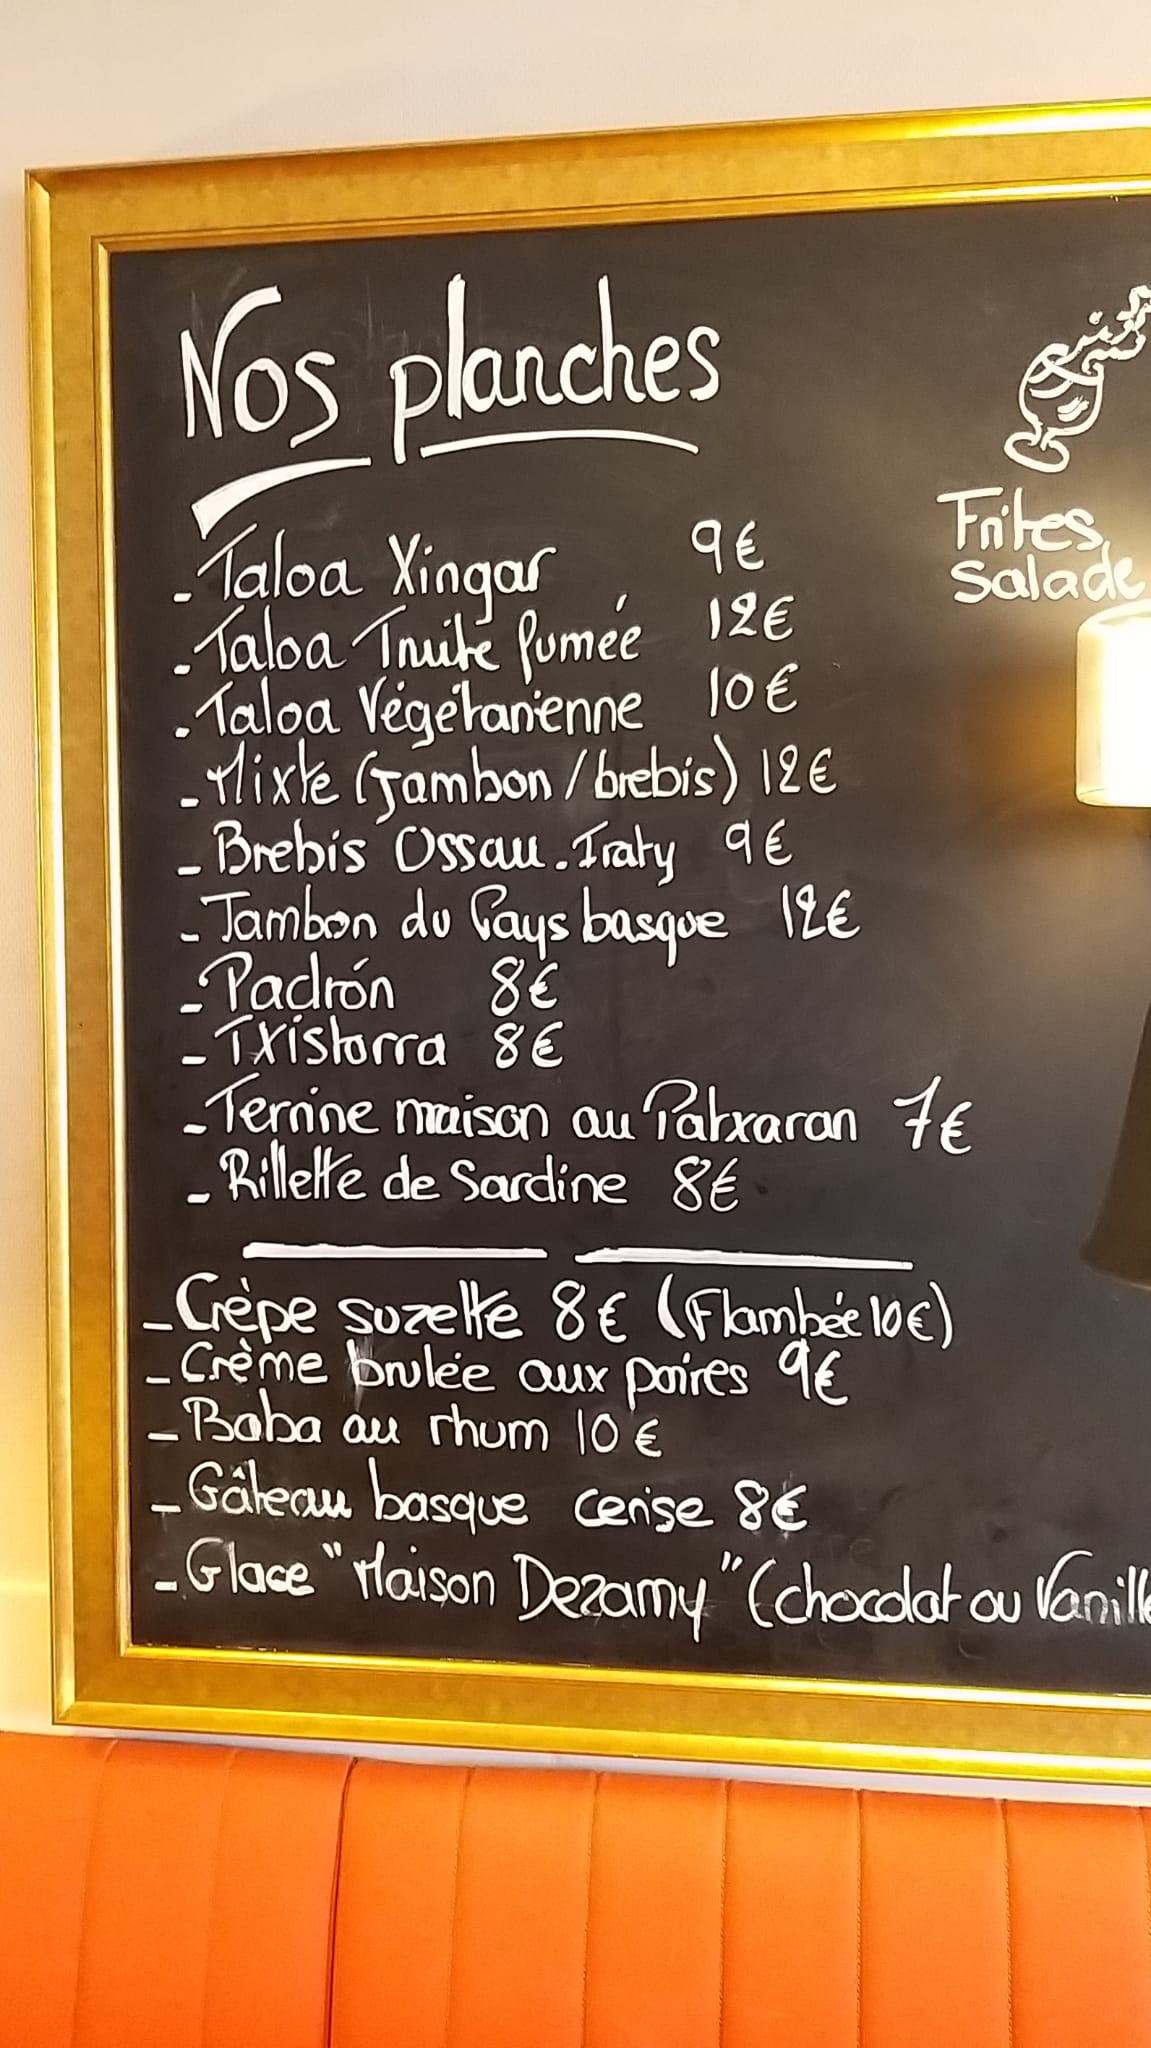 Nos planches
- Taloa Xingar 9€
- Taloa Truite fumée 12€
- Taloa Végétarienne 10€
- Mixte (Jambon/brebis) 12€
- Brebis Ossau.Iraty 9€
- Jambon du Pays basque 12€
- Padrón 8€
- Txistorra 8€
- Terrine maison au Patxaran 7€
- Rillette de Sardine 8€
- Crèpe suzette 8€ (Flambée 10€)
- Crème brulée aux poires 9€
- Baba au rhum 10€
- Gâteau basque cerise 8€
- Glace "Maison Dezamy" (chocolat ou Vanille
Frites,
Salade